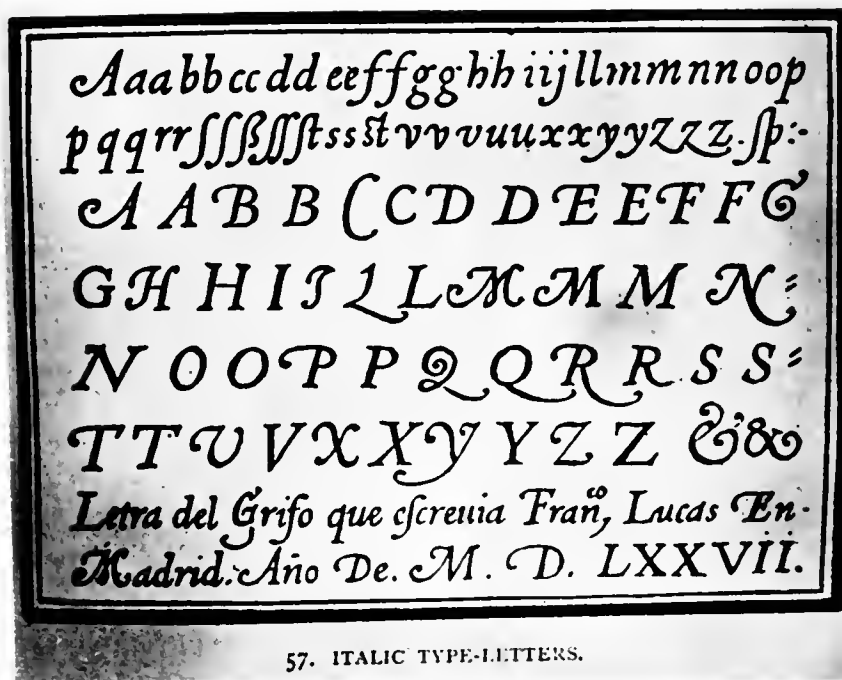 Aaabbccddeeffgghhiijllmmnnoop
pqqrrſſſßſſſtssstvvvuuxxyyzzz.ſp:-
A A B B C C D D E E F F G
G H H I J L L M M M N=
N O O P P Q Q R R S S=
T T V V X X Y Y Z Z & &
Letra del Grifo que eſcreuia Franͦ, Lucas En-
Madrid. Año De. M. D. LXXVII.
57. ITALIC TYPE-LETTERS.